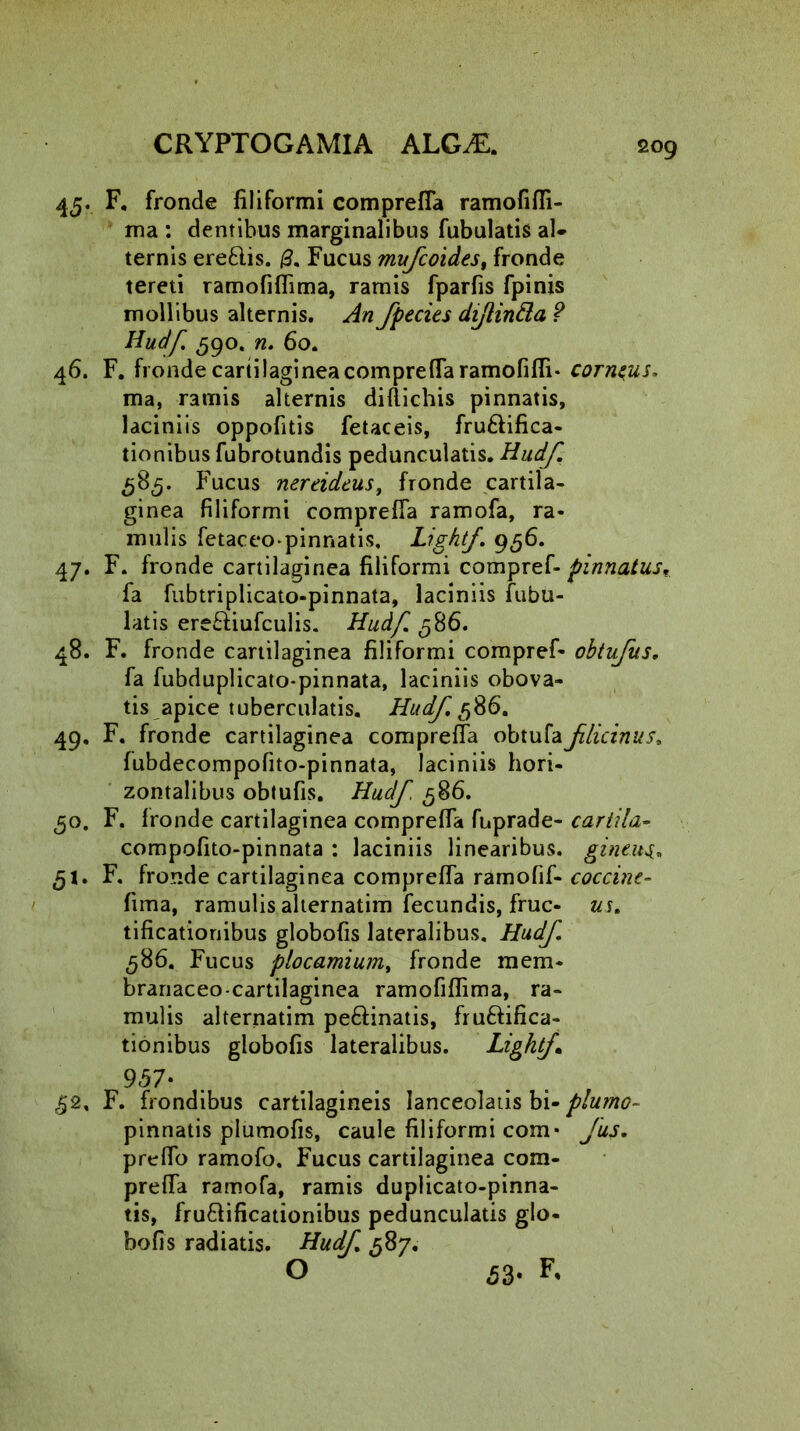 CRYPTOGAMIA ALGÆ. 209
45. F. fronde filiformi compreſſa ramofiſſi-
ma : dentibus marginalibus ſubulatis al-
ternis erectis. β. Fucus muſcoides, fronde
tereti ramoſiſſima, ramis ſparſis ſpinis
mollibus alternis. An ſpecies diſtincta?
Hudſ. 590. n. 60.
46. F. fronde cartilaginea compreſſa ramoſiſſi- corneus.
ma, ramis alternis diſtichis pinnatis,
laciniis oppoſitis ſetaceis, fructifica-
tionibus ſubrotundis pedunculatis. Hudſ.
585. Fucus nereideus, fronde cartila-
ginea filiformi compreſſa ramoſa, ra-
mulis ſetaceo-pinnatis. Lightf. 956.
47. F. fronde cartilaginea filiformi compreſ- pinnatus.
ſa ſubtriplicato-pinnata, laciniis ſubu-
latis erectiuſculis. Hudſ. 586.
48. F. fronde cartilaginea filiformi compreſ- obtuſus.
ſa ſubduplicato-pinnata, laciniis obova-
tis apice tuberculatis. Hudſ. 586.
49. F. fronde cartilaginea compreſſa obtuſa filicinus.
ſubdecompoſito-pinnata, laciniis hori-
zontalibus obtuſis. Hudſ. 586.
50. F. fronde cartilaginea compreſſa ſuprade- cartila-
compoſito-pinnata : laciniis linearibus. gineus.
51. F. fronde cartilaginea compreſſa ramoſiſ- coccine-
ſima, ramulis alternatim ſecundis, fruc- us.
tificationibus globoſis lateralibus. Hudſ.
586. Fucus plocamium, fronde mem-
branaceo-cartilaginea ramoſiſſima, ra-
mulis alternatim pectinatis, fructifica-
tionibus globoſis lateralibus. Lightf.
957.
52. F. frondibus cartilagineis lanceolatis bi- plumo-
pinnatis plumoſis, caule filiformi com- ſus.
preſſo ramoſo. Fucus cartilaginea com-
preſſa ramoſa, ramis duplicato-pinna-
tis, fructificationibus pedunculatis glo-
boſis radiatis. Hudſ. 587.
O 53. F.